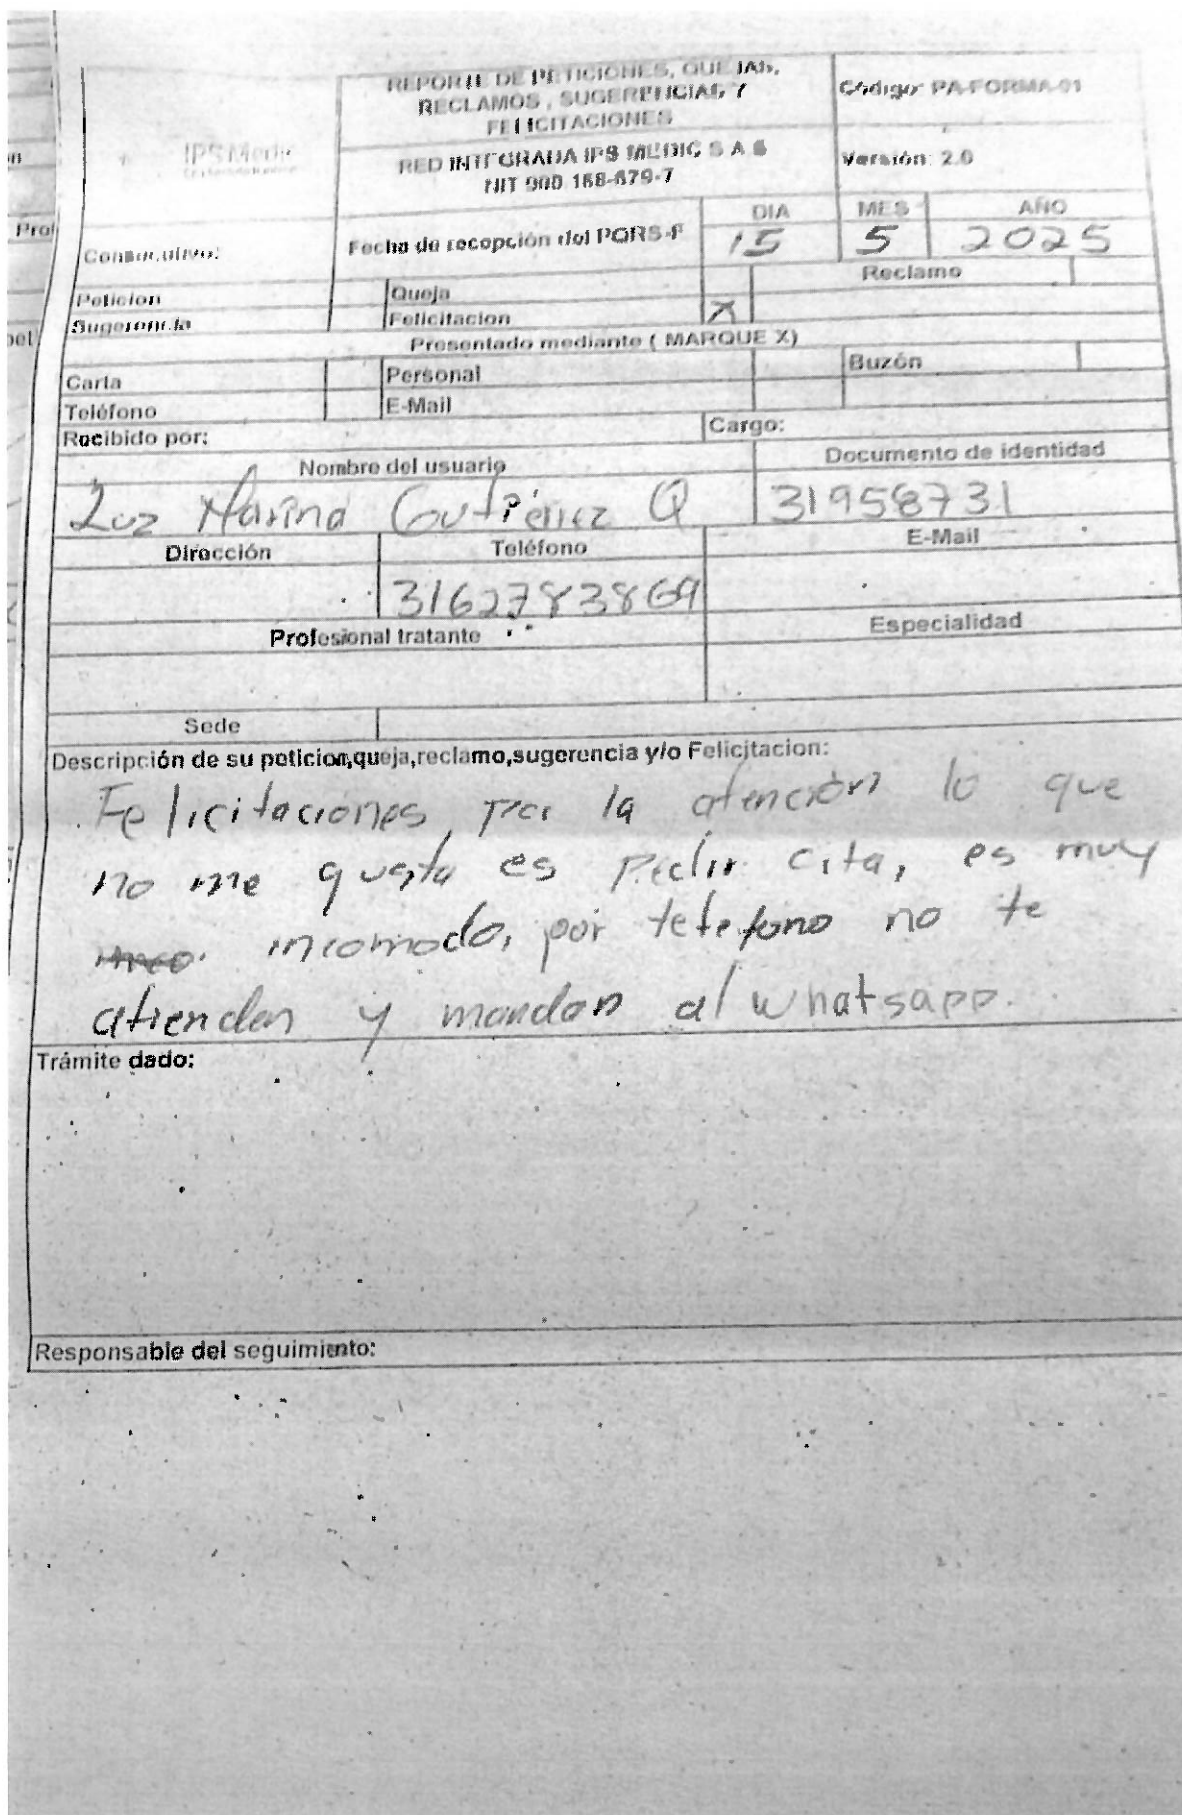 REPORTE DE PETICIONES, QUEJAS,
RECLAMOS , SUGERENCIAS Y
FELICITACIONES
Código: PA-FORMA-01
IPS Medic
RED INTEGRADA IPS MEDIC S A S
NIT 900 168-679-7
Versión: 2.0
Prof
Consecutivo:
Fecha de recepción del PQRS-F
DIA MES AÑO
15 5 2025
Peticion Queja Reclamo
Sugerencia Felicitacion X
Presentado mediante ( MARQUE X)
Carta Personal Buzón
Teléfono E-Mail
Recibido por: Cargo:
Nombre del usuario Documento de identidad
Luz Marina Gutiérrez Q 31958731
Dirección Teléfono E-Mail
3162783869
Profesional tratante Especialidad
Sede
Descripción de su peticion,queja,reclamo,sugerencia y/o Felicitacion:
Felicitaciones por la atención lo que
no me gusta es Pedir cita, es muy
incomodo, por telefono no te
atienden y mandan al whatsapp.
Trámite dado:
Responsable del seguimiento: